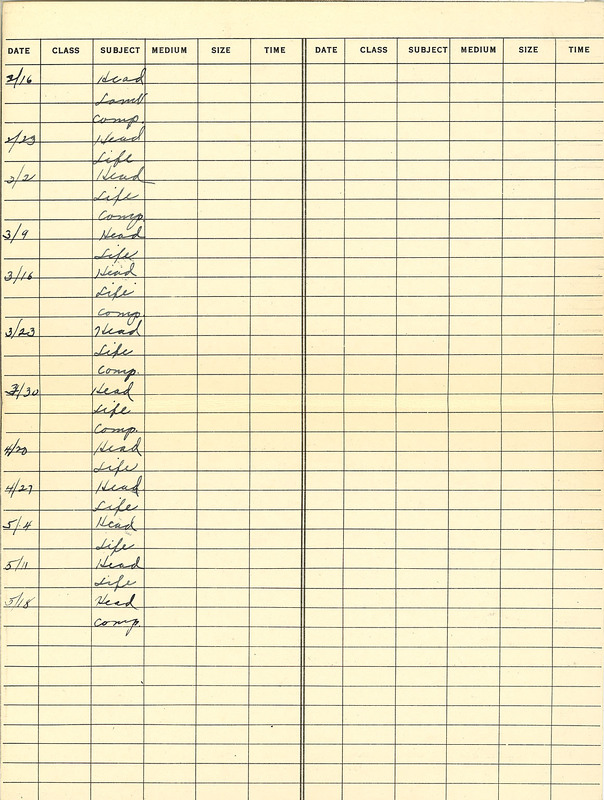 DATE CLASS SUBJECT MEDIUM SIZE TIME DATE CLASS SUBJECT MEDIUM SIZE TIME
2/16 Head
Comp.
2/23 Head
Life
3/2 Head
Life
Comp.
3/9 Head
Life
3/16 Head
Life
Comp.
3/23 Head
Life
Comp.
3/30 Head
Life
Comp.
4/20 Head
Life
4/27 Head
Life
5/4 Head
Life
5/11 Head
Life
5/18 Head
Comp.